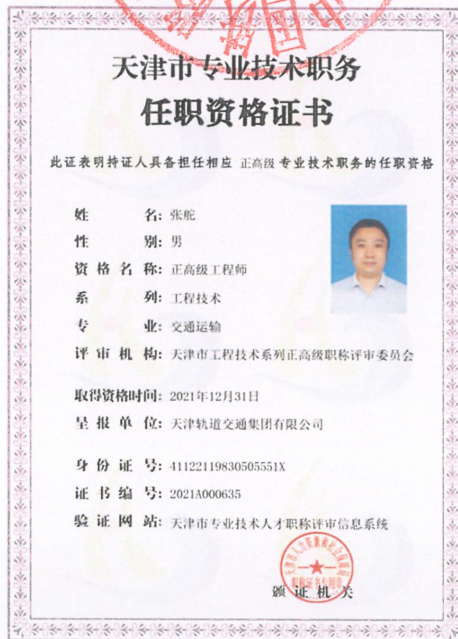 天津市专业技术职务
任职资格证书
此证表明持证人具备担任相应 正高级 专业技术职务的任职资格
姓 名: 张舵
性 别: 男
资格名称: 正高级工程师
系 列: 工程技术
专 业: 交通运输
评审机构: 天津市工程技术系列正高级职称评审委员会
取得资格时间: 2021年12月31日
呈报单位: 天津轨道交通集团有限公司
身份证号: 41122119830505551X
证书编号: 2021A000635
验证网站: 天津市专业技术人才职称评审信息系统
颁证机关